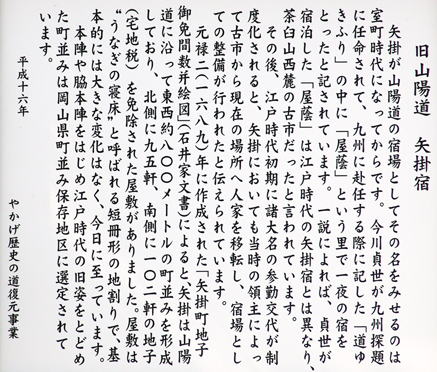 旧山陽道 矢掛宿
矢掛が山陽道の宿場としてその名をみせるのは
室町時代になってからです。今川貞世が九州探題
に任命されて、九州に赴任する際に記した「道ゆ
きふり」の中に「屋蔭」という里で一夜の宿を
とったと記されています。一説によれば、貞世が
宿泊した「屋蔭」は江戸時代の矢掛宿とは異なり、
茶臼山西麓の古市だったと言われています。
その後、江戸時代初期に諸大名の参勤交代が制
度化されると、矢掛においても当時の領主によっ
て古市から現在の場所へ人家を移転し、宿場とし
ての整備が行われたと伝えられています。
元禄二(一六八九)年に作成された「矢掛町地子
御免間数并絵図」(石井家文書)によると矢掛は山陽
道に沿って東西約八〇〇メートルの町並みを形成
しており、北側に九五軒、南側に一〇二軒の地子
(宅地税)を免除された屋敷がありました。屋敷は
“うなぎの寝床”と呼ばれる短冊形の地割りで、基
本的には大きな変化はなく、今日に至っています。
本陣や脇本陣をはじめ江戸時代の旧姿をとどめ
た町並みは岡山県町並み保存地区に選定されて
います。
平成十六年
やかげ歴史の道復元事業